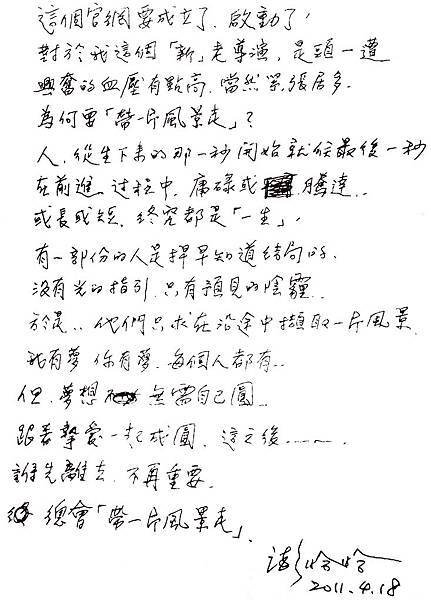 這個官網要成立了, 啟動了,
對於我這個「新」老導演, 是頭一遭
興奮的血壓有點高, 當然緊張居多.
為何要「帶一片風景走」?
人, 從生下來的那一秒開始就候最後一秒
在前進, 過程中, 庸碌或 騰達..
或長或短, 終究都是「一生」,
有一部份的人是提早知道結局的.
沒有光的指引, 只有預見的陰霾..
於是.. 他們只求在沿途中擷取一片風景.
我有夢 你有夢, 每個人都有..
但, 夢想 無需自己圓..
跟著摯愛一起成圓, 這之後......
誰先離去, 不再重要.
總會「帶一片風景走」.
澎恰恰
2011.4.18